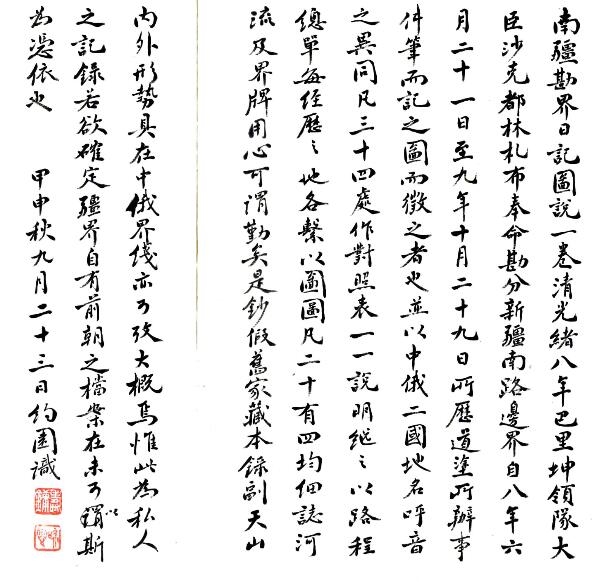 南疆勘界日記圖說一卷清光緒八年巴里坤領隊大
臣沙克都林札布奉命勘分新疆南路邊界自八年六
月二十一日至九年十月二十九日所歷道塗所辦事
件筆而記之圖而徵之者也並以中俄二國地名呼音
之異同凡三十四處作對照表一一說明繼之以路程
總單每經歷之地各繫以圖圖凡二十有四均細誌河
流及界牌用心可謂勤矣是鈔假舊家藏本錄副天山
內外形勢具在中俄界綫亦可攷大概焉惟此為私人
之記錄若欲確定疆界自有前朝之檔案在未可謂以斯
為憑依也 甲申秋九月二十三日約園識
壽鏞